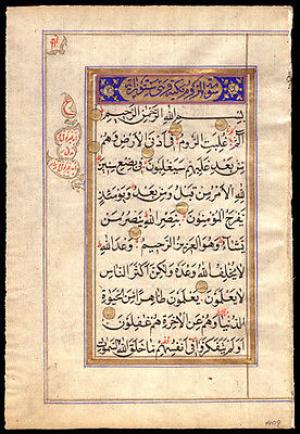 سورة الروم مكية وهي ستون آية
بسم الله الرحمن الرحيم
الم غلبت الروم في أدنى الأرض وهم
من بعد غلبهم سيغلبون في بضع سنين
لله الأمر من قبل ومن بعد ويومئذ
يفرح المؤمنون بنصر الله ينصر من
يشاء وهو العزيز الرحيم وعد الله
لا يخلف الله وعده ولكن أكثر الناس
لا يعلمون يعلمون ظاهرا من الحيوة
الدنيا وهم عن الآخرة هم غفلون
أولم يتفكروا في أنفسهم ما خلق الله السموات